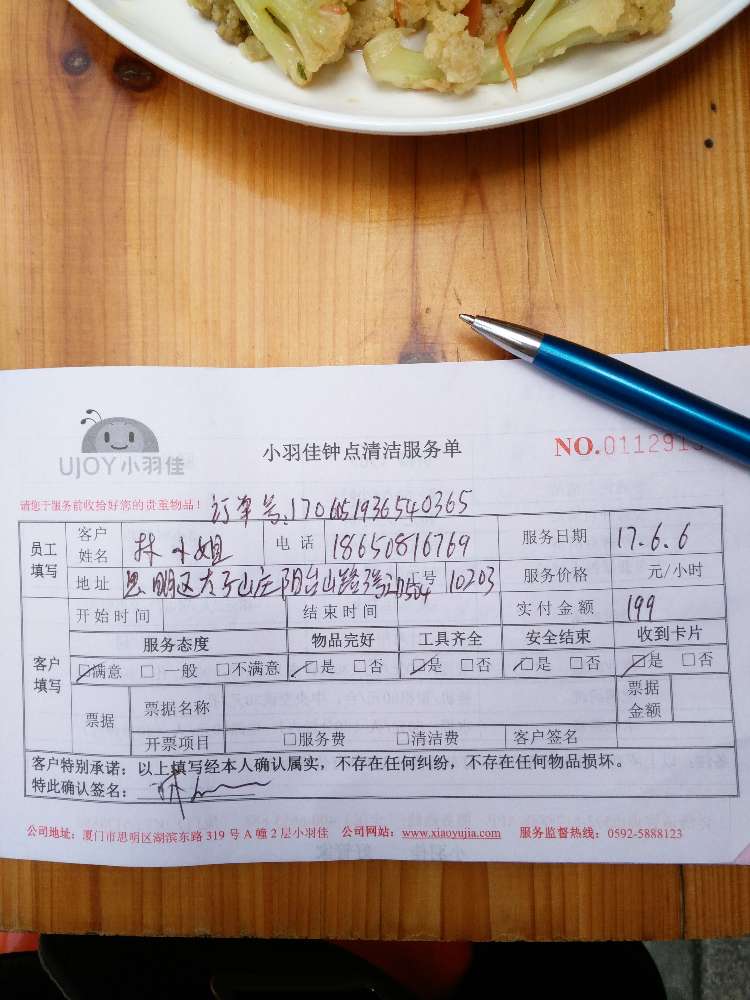 UJOY小羽佳
小羽佳钟点清洁服务单
NO.011291
请您于服务前收拾好您的贵重物品！
订单号:
员工填写 客户姓名 林小姐 电话 18650816769 服务日期 17.6.6
地址 思明区 山庄阳台山路 工号 10203 服务价格 元/小时
客户填写 开始时间 结束时间 实付金额 199
服务态度 物品完好 工具齐全 安全结束 收到卡片
☑满意 □一般 □不满意 ☑是 □否 ☑是 □否 ☑是 □否 ☑是 □否
票据 票据名称 票据金额
开票项目 □服务费 □清洁费 客户签名
客户特别承诺：以上填写经本人确认属实，不存在任何纠纷，不存在任何物品损坏。
特此确认签名：
公司地址：厦门市思明区湖滨东路 319 号 A 幢 2 层小羽佳 公司网站：www.xiaoyujia.com 服务监督热线：0592-5888123